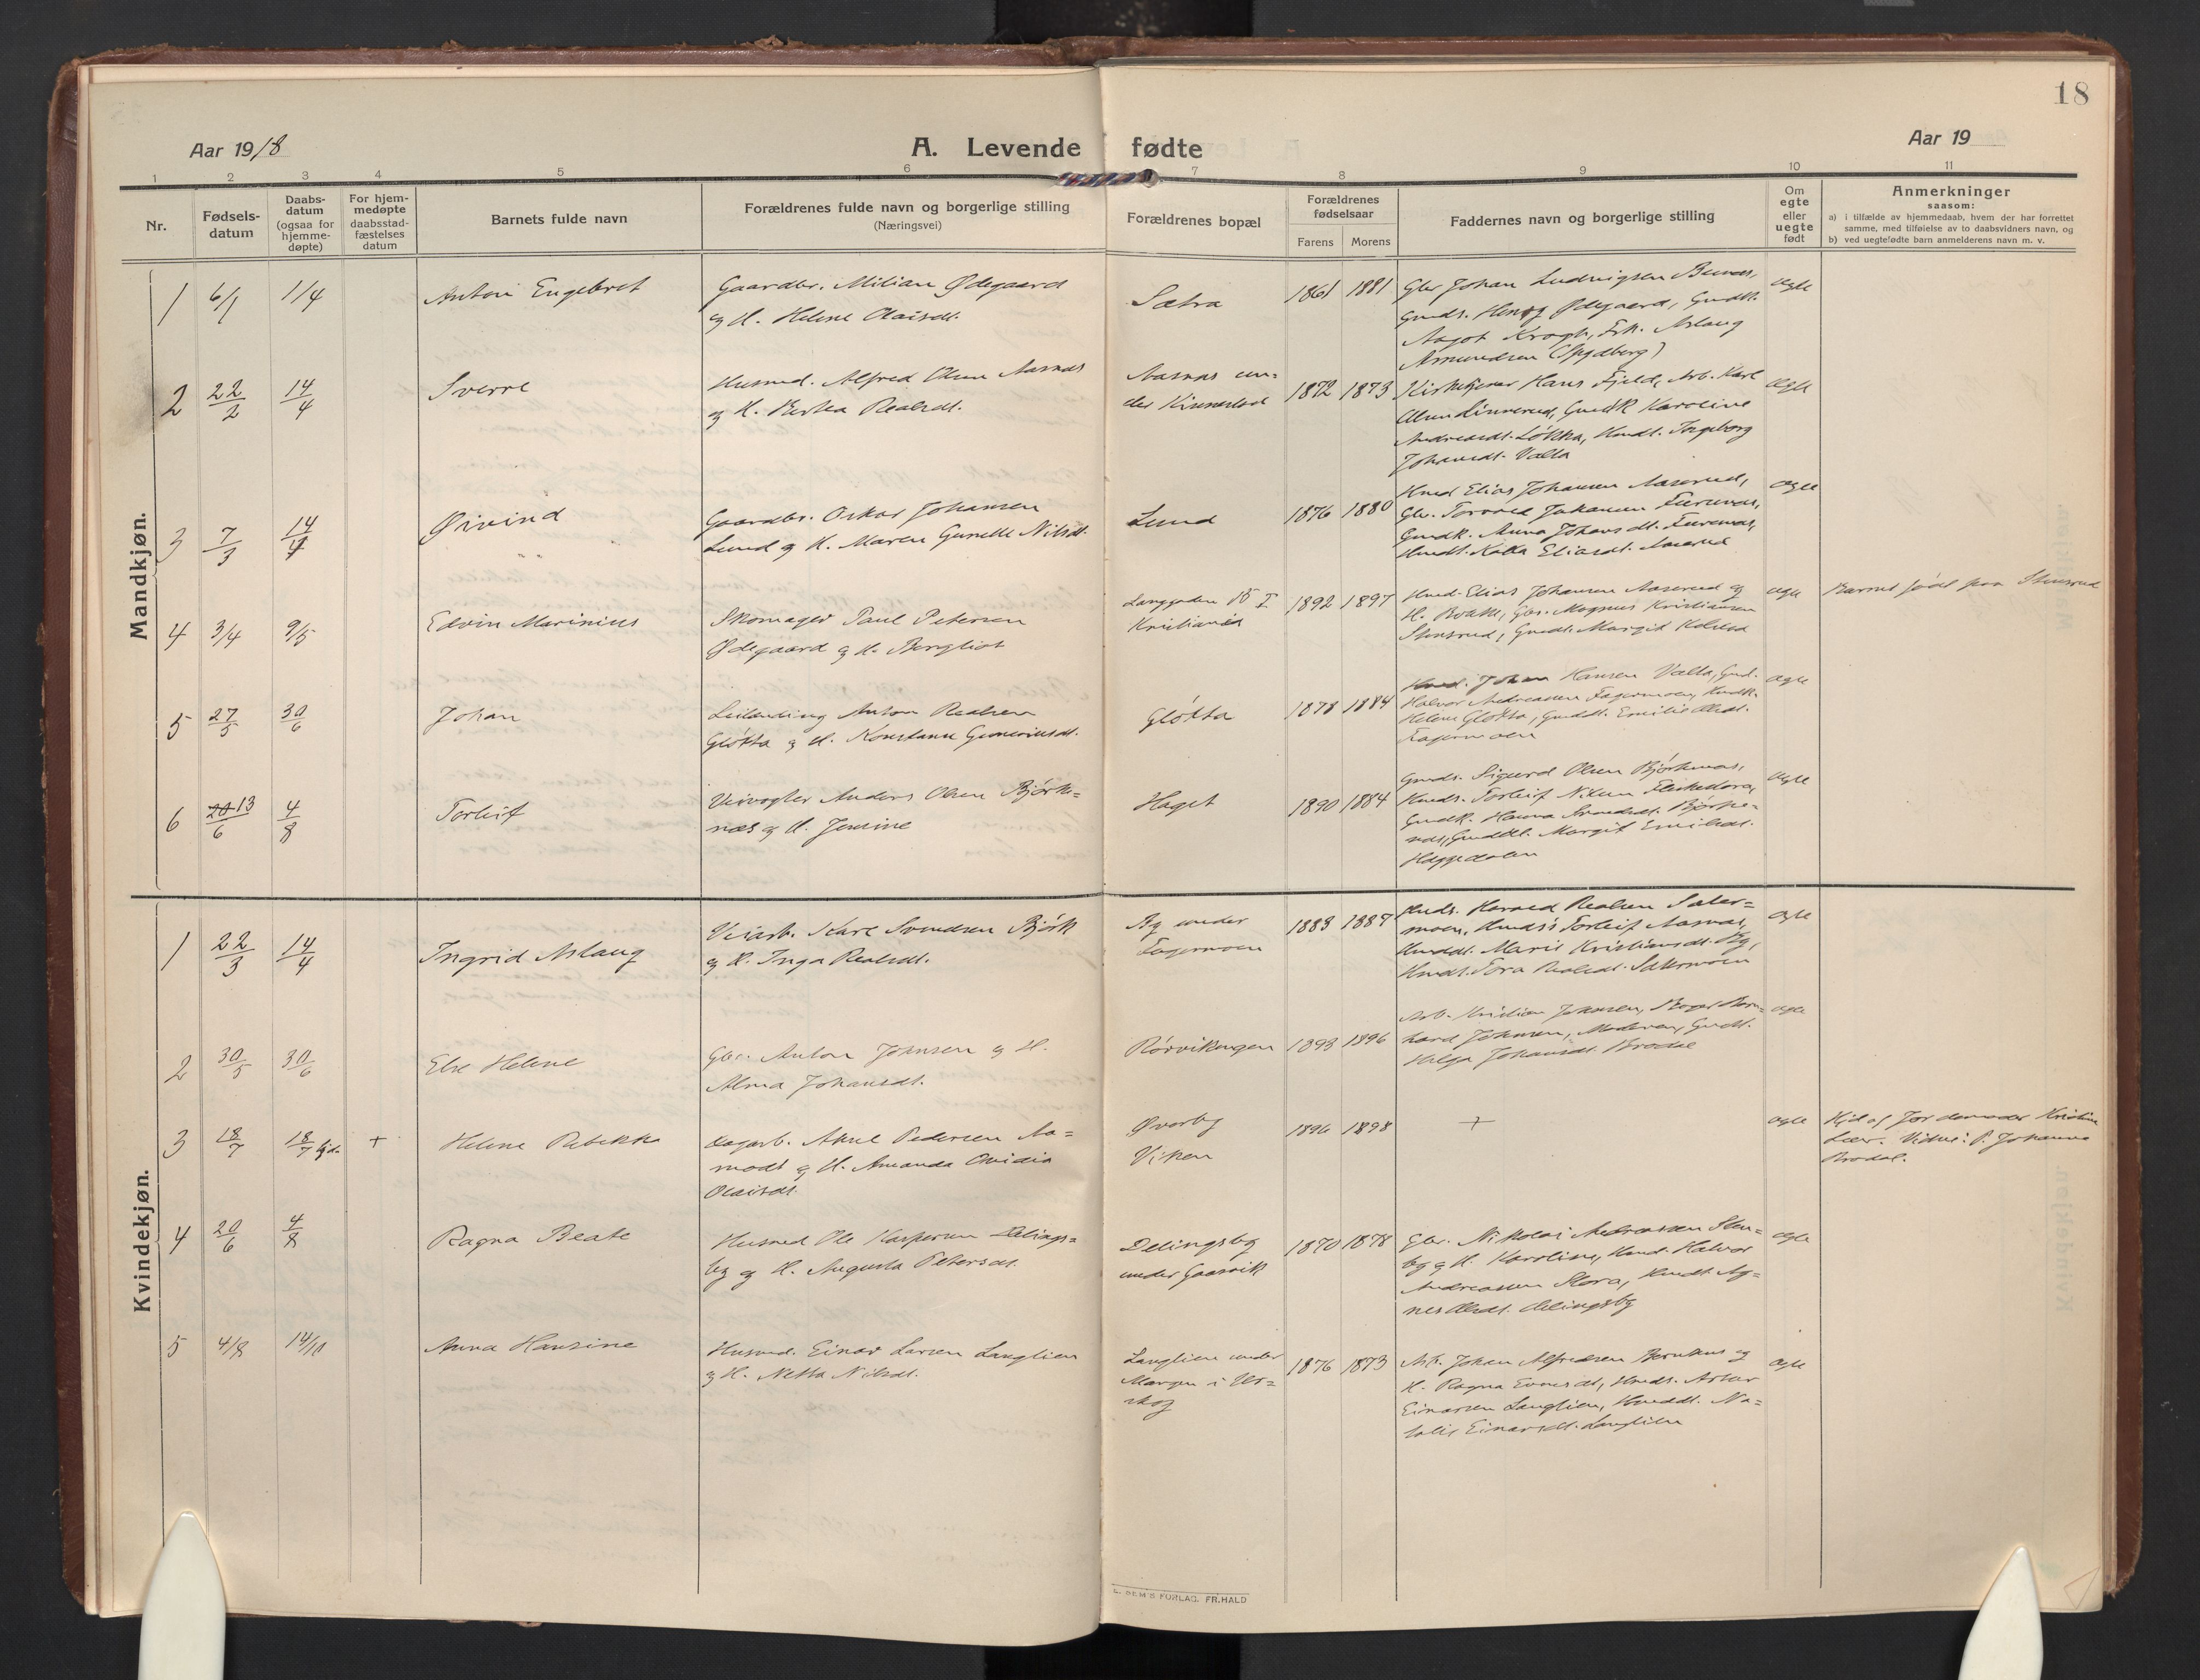 18
Aar 1918
A. Levende fødte
Aar 19
1 2 3 4 5 6 7 8 9 10 11
Nr.
Fødsels-
datum
Daabs-
datum
(ogsaa for
hjemme-
døpte)
For hjem-
medøpte
daabsstad-
fæstelses
datum
Barnets fulde navn
Forældrenes fulde navn og borgerlige stilling
(Næringsvei)
Forældrenes bopæl
Forældrenes
fødselsaar
Farens Morens
Faddernes navn og borgerlige stilling
Om
egte
eller
uegte
født
Anmerkninger
saasom:
a) i tilfælde av hjemmedaab, hvem der har forrettet
samme, med tilføielse av to daabsvidners navn, og
b) ved uegtefødte barn anmelderens navn m. v.
Mandkjøn.
1 6/1 11/4 Anton Engebret
Gaardbr. Milian Ødegaard
og H. Helene Olaisdt.
Sætra
1861 1881
Gbr Johan Ludvigsen
Gmds. Henry Ødegaard, Gmdk.
Aagot Krogh, Frk. Aslaug
Amundsen (Spydberg)
ægte
2 22/2 14/4 Sverre
Husmd. Alfred Olsen Aasnæs
og H. Berthea Realsdt.
Aasnæs un-
der Kinnestad
1872 1873
Kirketjener Hans Fjeld, Arb. Karl
Olsen Linnerud, Gmdk Karoline
Andreasdt. Løkka, Hmdt. Ingeborg
Johansdt. Valla
ægte
3 7/3 14/4 Øivind
Gaardbr. Oskar Johansen
Lund og H. Maren Gunelle Nilsdt.
Lund
1876 1880
Hmd Elias Johansen Aaserud,
Gbr. Torvald Johansen Furunæs,
Gmdk. Anna Johansdt. Furunæs,
Hmdt. Kalla Eliasdt. Aaserud
ægte
4 3/4 9/5 Edvin Marinius
Skomager Paul Petersen
Ødegaard og H. Bergliot
Kristiania
1892 1897
Hmd. Elias Johansen Aaserud og
H. Bolette, Gbr. Magnus Kristiansen
Stensrud, Gmdt. Margit
ægte
Barnet født paa Stensrud
5 27/5 30/6 Johan
Leilending Anton Realsen
Gløtta og H. Konstanse Guneriusdt.
Gløtta
1878 1884
Hmd. Johan Hansen Valla, Gmd.
Halvor Andreassen Fagermoen, Hmdk.
Helene Gløtta, Gmdt. Emilie Olsdt.
Fagermoen
ægte
6 20 13/6 4/8 Torleif
Veivogter Anders Olsen Bjørke-
næs og H. Jensine
Haget
1890 1884
Gmds. Sigurd Olsen Bjørkenæs,
Hmds. Torleif Nilsen
Gmdk. Hanna Bjørke-
næs, Gmddt. Margit Emilsdt.
Haggedalen
ægte
Kvindekjøn.
1 22/3 14/4 Ingrid Aslaug
Veiarb. Karl Svendsen Bjørk
og H. Inga Realsdt.
By under
Fagermoen
1883 1887
Hmds. Harald Realsen Sæter-
moen, Hmds's Torleif Aasnæs,
Hmddt. Marit Kristiansdt. By,
Hmdt. Tora Realsdt. Sætermoen
ægte
2 30/5 30/6 Else Helene
Gbr. Anton Johnsen og H.
Alma Johansdt.
Rørvikengen
1893 1896
Arb. Kristian Johnsen, Bern-
hard Johnsen, Moderen, Gmdt.
Helga Johansdt. Brodal
ægte
3 18/7 18/7 hjd. + Helene Rebekka
Dagarb. Aksel Pedersen Aa-
modt og H. Amanda Ovidia
Olaisdt.
Øvarby
Viken
1896 1898
+
ægte
Hjd af Jordemoder Kristine
Lier. Vidne: P. Johanne
Brodal.
4 20/6 4/8 Ragna Beate
Husmd Ole Kaspersen Delings-
by og H. Augusta Petersdt.
Delingsby
under Gaasvik
1870 1878
Gbr. Nikolai Andreassen Sten-
by og H. Karoline, Hmd. Halvor
Andreassen Flora, Hmdt. Ag-
nes Olsdt. Delingsby
ægte
5 4/8 14/10 Anna Hansine
Husmd. Einar Larsen Langlien
og H. Netta Nilsdt.
Langlien under
Mangen i Ur-
skog
1876 1873
Arb. Johan Alfredsen og
H. Ragna Evensdt, Hmds. Asbar
Einarsen Langlien, Hmddt. Na-
talie Einarsdt. Langlien
ægte
E. SEM'S FORLAG. FR.HALD